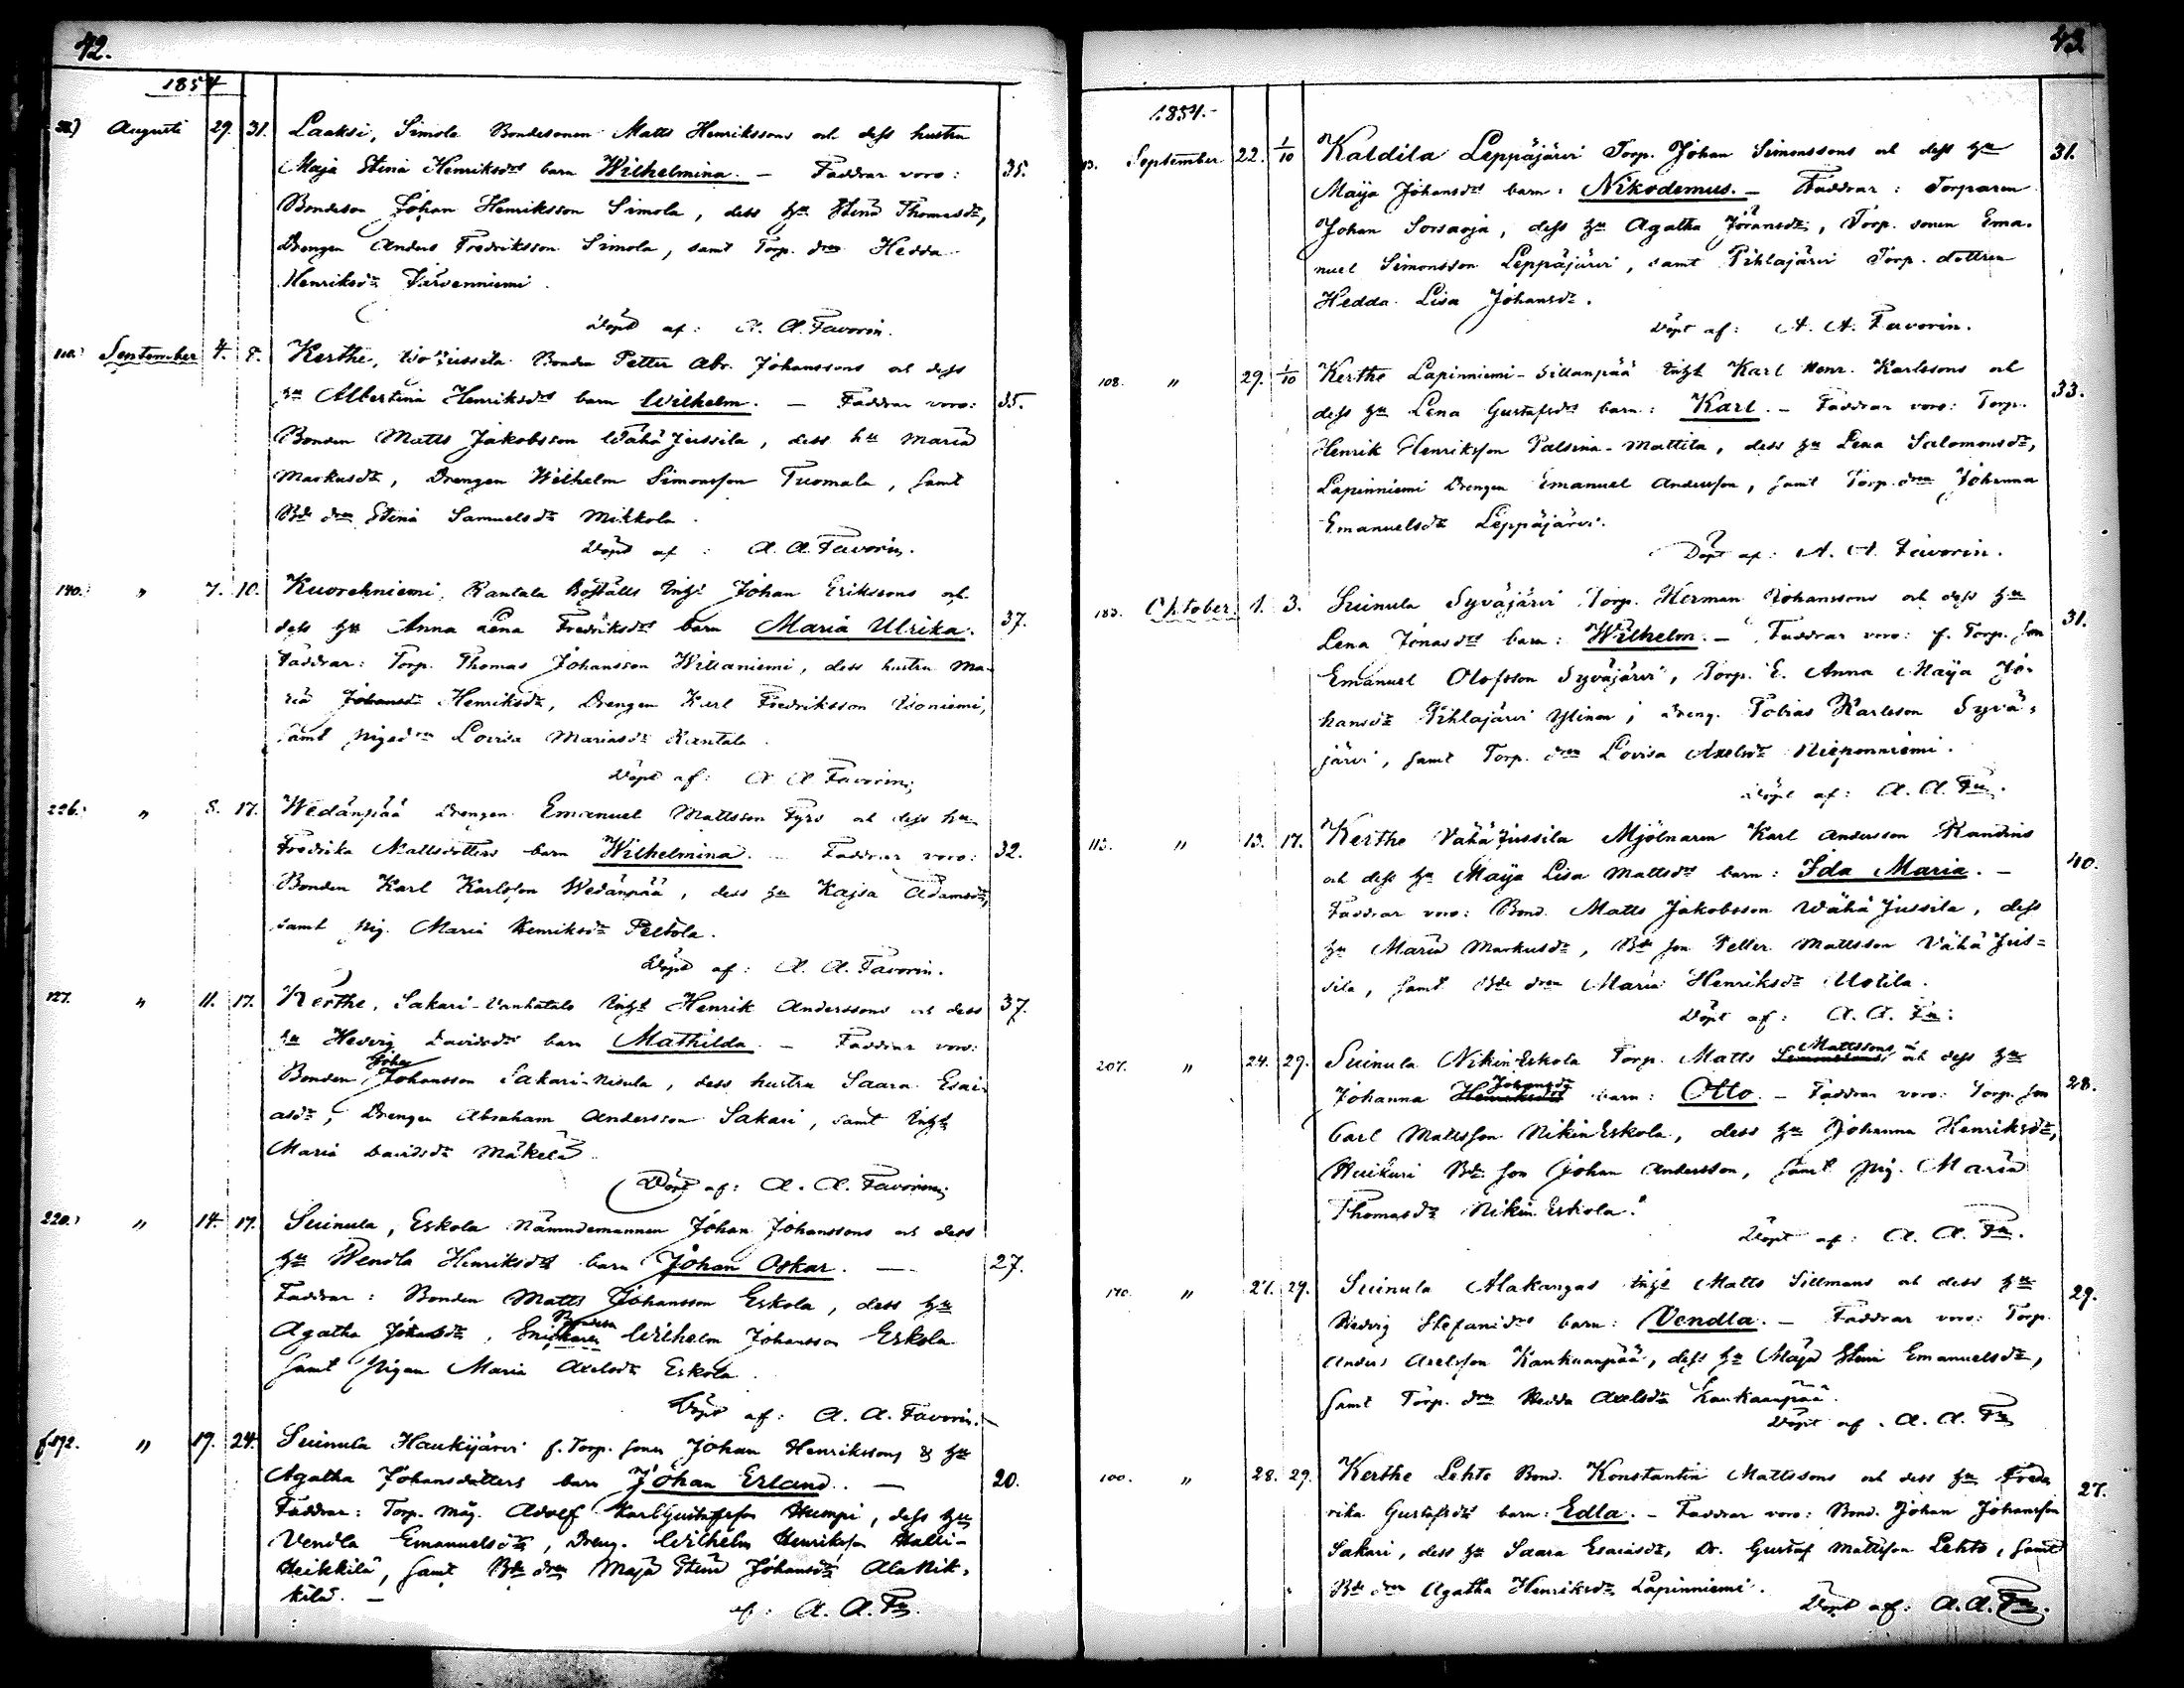 42.
1854
Augusti 29. 31. Laaksi, Simola Bondesonen Matts Henrikssons och dess hustru
Maja Stina Henriksdrs barn Wilhelmina. — Faddrar voro: 35.
Bondeson Johan Henriksson Simola, dess hu Stina Thomasdr,
Drengen Anders Fredriksson Simola, samt Torp. drn Hedda
Henriksdr Järvenniemi.
Döpt af: A. A. Favorin.
September 4. 8. Kerthe, Iso Jussila Bonden Petter Abr. Johanssons och dess
hu Albertina Henriksdrs barn Wilhelm. — Faddrar voro: 35.
Bonden Matts Jakobsson Wähä Jussila, dess hu Maria
Markusdr, Drengen Wilhelm Simonsson Tuomala, samt
Bde drn Stina Samuelsdr Mikkola.
Döpt af: A. A. Favorin.
140. " 7. 10. Kuorehniemi, Rantala Boställs Inhs Johan Erikssons och
dess hu Anna Lena Fredriksdrs barn Maria Ulrika. 37.
Faddrar: Torp. Thomas Johansson Witsaniemi, dess hustru Ma-
ria Johansdr Henriksdr, Drengen Karl Fredriksson Isoniemi,
samt pigan Lovisa Mariasdr Rantala.
Döpt af: A. A. Favorin.
226. " 8. 17. Wedänpää Drengen Emanuel Mattsson Fyrs och dess hu
Fredrika Mattsdotters barn Wilhelmina. — Faddrar voro: 32.
Bonden Karl Karlsson Wedänpää, dess hu Kajsa Adamsdr,
samt pig. Maria Henriksdr Peltola.
Döpt af: A. A. Favorin.
127. " 11. 17. Kerthe, Sakari-Vanhatalo Inhs Henrik Anderssons och dess 37.
hu Hedvig Davidsdrs barn Mathilda. — Faddrar voro:
Johan
Bonden Johansson Sakari-Nisula, dess hustru Saara Esai-
asdr, Drengen Abraham Andersson Sakari, samt Inhs
Maria Davidsdr Mäkelä.
Döpt af: A. A. Favorin.
220. " 14. 17. Suinula, Eskola Nämndemannen Johan Johanssons och dess
hu Wendla Henriksdrs barn Johan Oskar. — 27.
Faddrar: Bonden Matts Johansson Eskola, dess hu
Agatha Johansdr, Snickaren Wilhelm Johansson Eskola
samt Pigan Maria Axelsdr Eskola.
Döpt af: A. A. Favorin.
f.192. " 19. 24. Suinula Haukijärvi f. Torp. sonen Johan Henrikssons & hu
Agatha Johansdotters barn Johan Erland. — 20.
Faddrar: Torp. måg. Adolf Karl Gustafsson Humpi, dess hu
Vendla Emanuelsdr, Dreng. Wilhelm Henriksson Halli-
Heikkilä, samt Bde drn Maja Stina Johansdr Ala Nik-
kilä. —
af: A. A. Fn.
43
1854.
September 22. 1/10 Kaldila Leppäjärvi Torp. Johan Simonssons och dess hu 31.
Maija Johansdrs barn: Nikodemus. — Faddrar: Torparen
Johan Sorsaoja, dess hu Agatha Göransdr, Torp. sonen Ema-
nuel Simonsson Leppäjärvi, samt Pihlajärvi Torp. dottren
Hedda Lisa Johansdr.
Döpt af: A. A. Favorin.
108. " 29. 1/10 Kerthe Lapinniemi-Sillanpää Inhs Karl Henr. Karlssons och
dess hu Lena Gustafsdrs barn: Karl. — Faddrar voro: Torp. 33.
Henrik Henriksson Palsina-Mattila, dess hu Lena Salomonsdr,
Lapinniemi Drengen Emanuel Andersson, samt Torp. drn Johanna
Emanuelsdr Leppäjärvi.
Döpt af: A. A. Favorin.
183. Oktober 1. 3. Suinula Syväjärvi Torp. Herman Johanssons och dess hu
Lena Jonasdrs barn: Wilhelm. — Faddrar voro: f. Torp. son 31.
Emanuel Olofsson Syväjärvi, Torp. E. Anna Maija Jo-
hansdr Pihlajärvi Ylinen, Dreng. Tobias Karlsson Syvä-
järvi, samt Torp. drn Lovisa Axelsdr Nieponniemi.
Döpt af: A. A. Fn.
113. " 13. 17. Kerthe Vähä Jussila Mjölnaren Karl Andersson Randins
och dess hu Maija Lisa Mattsdrs barn: Ida Maria. — 40.
Faddrar voro: Bond. Matts Jakobsson Wähä Jussila, dess
hu Maria Markusdr, Bde son Petter Mattsson Vähä Jus-
sila, samt Bde drn Maria Henriksdr Uotila.
Döpt af: A. A. Fn.
207. " 24. 29. Suinula Nikin-Eskola Torp. Matts Simonssons Mattssons och dess hu
Johanna Henriksdrs Johansdrs barn: Otto. — Faddrar voro: Torp. son 28.
Carl Mattsson Nikin Eskola, dess hu Johanna Henriksdr,
Huikuri Bde son Johan Andersson, samt pig. Maria
Thomasdr Nikin Eskola.
Döpt af: A. A. Fn.
170. " 27. 29. Suinula Alakangas Inhs Matts Sillmans och dess hu 29.
Hedvig Stefanidrs barn: Vendla. — Faddrar voro: Torp.
Anders Axelsson Kankaanpää, dess hu Maja Stina Emanuelsdr,
samt Torp. drn Hedda Axelsdr Kankaanpää.
Döpt af. A. A. Fn
100. " 28. 29. Kerthe Lehto Bond. Konstantin Mattssons och dess hu Fred-
rika Gustafsdrs barn: Edla. — Faddrar voro: Bond. Johan Johansson 27.
Sakari, dess hu Saara Esaiasdr, Dr. Gustaf Mattsson Lehto, samt
Bde drn Agatha Henriksdr Lapinniemi.
Döpt af: A. A. Fn.